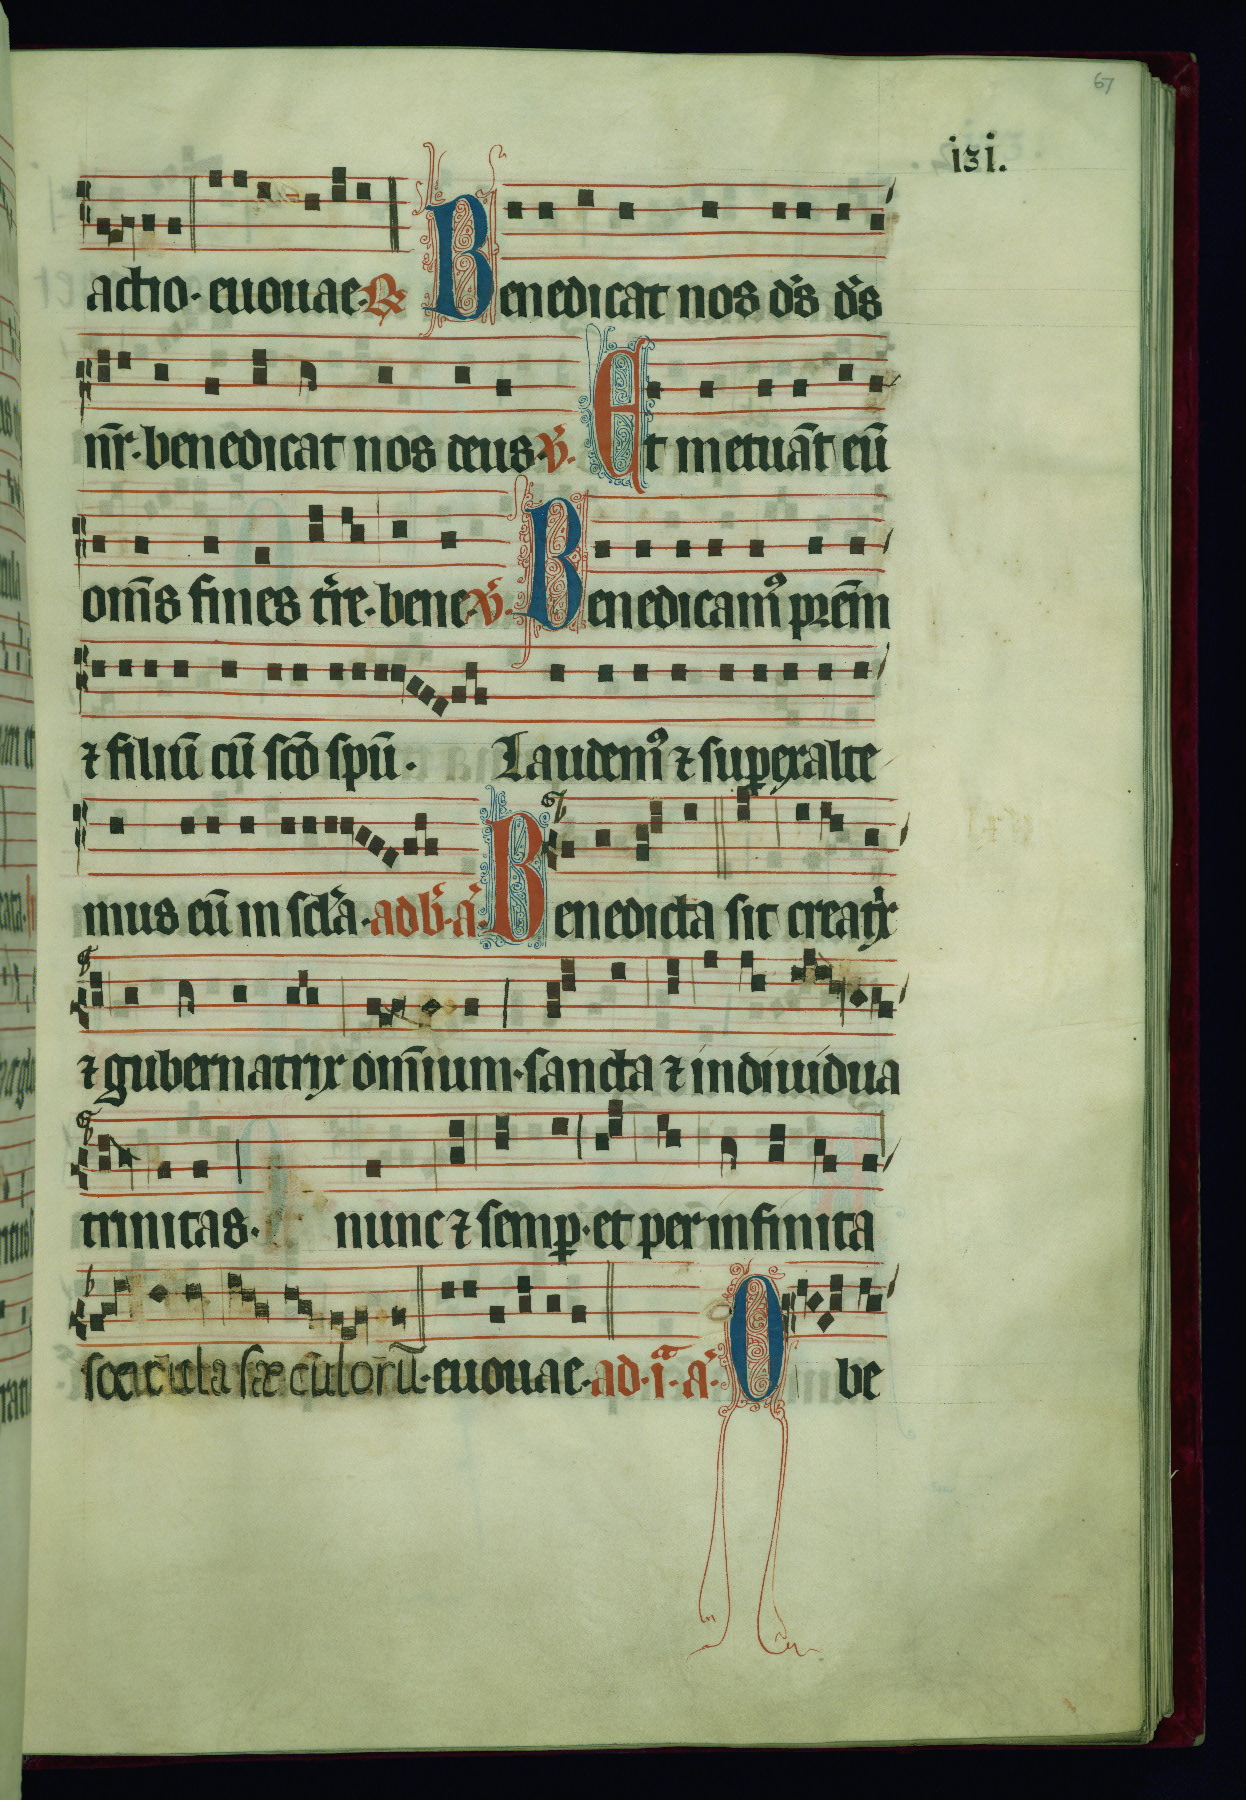 67
i3i.
actio· euouae· R̷ Benedicat nos d̅s d̅s
nr̅· benedicat nos deus· v̅. Et metuāt eū
om̅s fines tr̅re· bene v̅. Benedicamꝰ pr̅em
⁊ filiū cū sc̅o spū· Laudemꝰ ⁊ suꝑexalte
mus eū in scl̅a· ad b̅· a̅· Benedicta sit creatͥx
⁊ gubernatrix om̅ium· sancta ⁊ indiuidua
trinitas· nunc ⁊ semꝑ· et per infinita
sæcula sæculorū· euouae· ad· i· a̅· O be